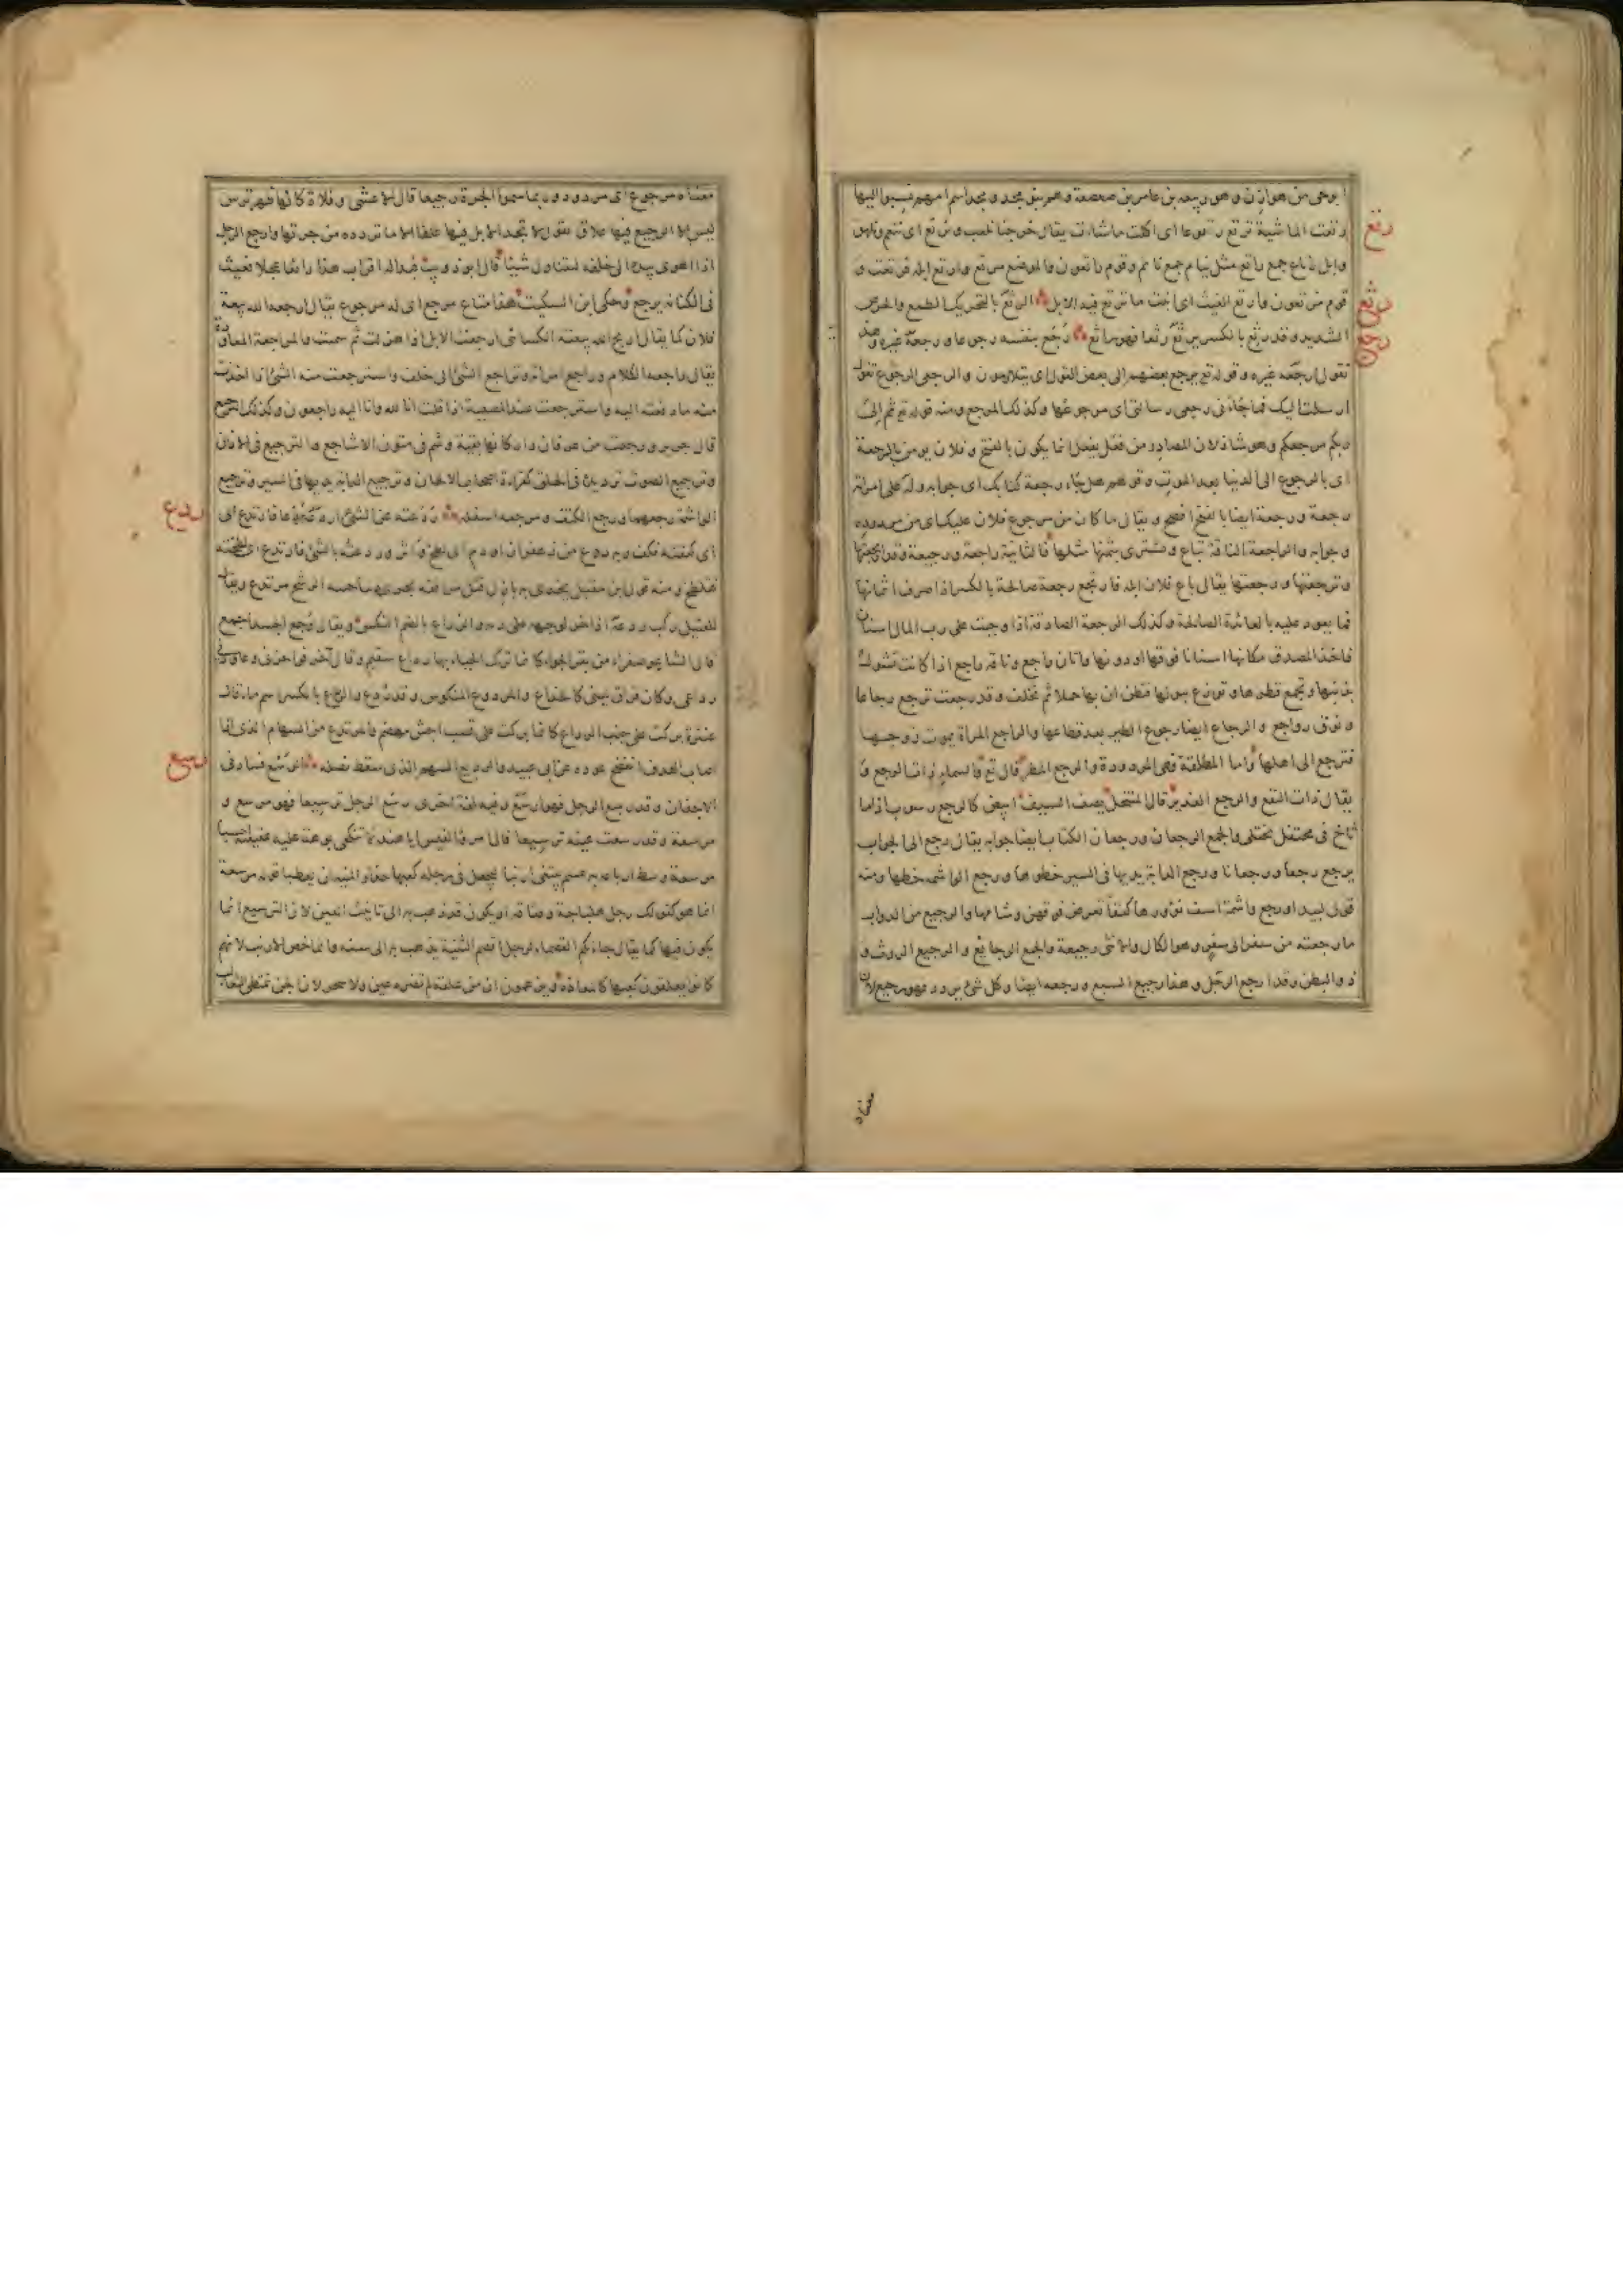 ابوحى من هوازن وهو ربيعة بن عامر بن صعصعة وهم بنو مجد ومجد اسم امهم نسبوا اليها
رتع
رتعت الماشية ترتع رتوعا اى اكلت ما شاءت يقال خرجنا نلعب ونرتع اى ننعم ونلهو
وابل رتاع جمع راتع مثل نيام جمع نائم وقوم راتعون والموضع مرتع وارتع ابله فرتعت و
رثع
قوم مرتعون وارتع الغيث اى انبت ما ترتع فيه الابل الرثع بالتحريك الطمع والحرص
رجع
الشديد وقد رثع بالكسر يرثع رثعا فهو راثع رجع بنفسه رجوعا ورجعه غيره وهذيل
تقول ارجعه غيره وقوله تع يرجع بعضهم الى بعض القول اى يتلاومون والرجعى الرجوع تقول
ارسلت اليك فما جاءنى رجعى رسالتى اى مرجوعها وكذلك المرجع ومنه قوله تع ثم الى
ربكم مرجعكم وهو شاذ لان المصادر من فعل يفعل انما يكون بالفتح وفلان يومن بالرجعة
اى بالرجوع الى الدنيا بعد الموت وقولهم هل جاء رجعة كتابك اى جوابه وله على امراته
رجعة ورجعة ايضا بالفتح افصح ويقال ما كان من مرجوع فلان عليك اى من مردوده
وجوابه والراجعة الناقة تباع وتشترى بثمنها مثلها فالثانية راجعة ورجيعة وقد ارتجعتها
وترجعتها ورجعتها يقال باع فلان ابله فارتجع رجعة صالحة بالكسر اذا صرف اثمانها
فيما يعود عليه بالعائدة الصالحة وكذلك الرجعة الصدقة اذا وجبت على رب المال اسنان
فاخذ المصدق مكانها اسنانا فوقها او دونها واتان راجع وناقة راجع اذا كانت تشول
بذنبها وتجمع قطريها وتوزع ببولها فتظن ان بها حملا ثم تخلف وقد رجعت ترجع رجاعا
ونوق رواجع والرجاع ايضا رجوع الطير بعد قطاعها والراجع المراة يموت زوجها
فترجع الى اهلها واما المطلقة فهى المردودة والرجع المطر قال تع والسماء ذات الرجع و
يقال ذات النفع والرجع الغدير قال المتنخل يصف السيف ابيض كالرجع رسوب اذا ما
ثاخ فى محتفل يختلى والجمع الرجعان ورجعان الكتاب ايضا جوابه يقال رجع الى الجواب
يرجع رجعا ورجعانا ورجع الدابة يديها فى السير خطوها ورجع الواشمة خطها ومنه
قول لبيد او رجع واشمة اسف نؤورها كففا تعرض فوقهن وشامها والرجيع من الدواب
ما رجعته من سفر الى سفر وهو الكال والانثى رجيعة والجمع الرجائع والرجيع الروث و
ذو البطن وقد ارجع الرجل وهذا رجيع السبع ورجعه ايضا وكل شئ يردد فهو رجيع لان
معناه
معناه مرجوع اى مردود وربما سموا الجرة رجيعا قال الاعشى وفلاة كانها ظهر ترس
ليس الا الرجيع فيها علاق يقول لا تجد الابل فيها علقا الا ما تردده من جرتها وارجع الرجل
اذا اهوى بيده الى خلفه ليتناول شيئا قال ابو ذويب فبدا له اقراب هذا رائغا عجلا فعيث
فى الكنانة يرجع وحكى ابن السكيت هذا متاع مرجع اى له مرجوع يقال ارجع الله بيعة
فلان كما يقال اربح الله بيعته الكسائى ارجعت الابل اذا هزلت ثم سمنت والمراجعة المعاودة
يقال راجعه الكلام وراجع امراته وتراجع الشئ الى خلف واسترجعت منه الشئ اذا اخذت
منه ما دفعته اليه واسترجعت عند المصيبة اذا قلت انا لله وانا اليه راجعون وكذلك الترجيع
قال جرير ورجعت من عرفان دار كانها بقية وشم فى متون الاشاجع والترجيع فى الاذان
وترجيع الصوت ترديده فى الحلق كقراءة اصحاب الالحان وترجيع الدابة يديها فى السير وترجيع
ردع
الواشمة رجعهما ورجع الكتف ومرجعه اسفله ردعته عن الشئ اردعه ردعا فارتدع اى
اى كففته فكف وبه ردع من زعفران او دم اى لطخ واثر وردعته بالشئ فارتدع اى لطخته
فتلطخ ومنه قول ابن مقبل يخدى بها بازل فتل مرافقه يجرى بديباجتيه الرشح مرتدع ويقال
للقتيل ركب ردعه اذا خر لوجهه على دمه والرداع بالضم النكس ويقال وجع الجسد اجمع
قال الشاعر صفراء من بقر الجواء كانما ترك الحياء بها رداع سقيم وقال اخر فوا حزنى وعاودنى
رداعى وكان فراق لبنى كالخداع والمردوع المنكوس وقد ردع والرداع بالكسر اسم ماء قال
عنترة بركت على جنب الرداع كانما بركت على قصب اجش مهضم والمرتدع من السهام الذى اذا
رسع
اصاب الهدف انفضخ عوده عن ابى عبيد والرديع السهم الذى سقط نصله الرسع فساد فى
الاجفان وقد رسع الرجل فهو ارسع وفيه لغة اخرى رسع الرجل ترسيعا فهو مرسع و
مرسعة وقد رسعت عينه ترسيعا قال امرؤ القيس ايا هند لا تنكحى بوهة عليه عقيقته احسبا
مرسعة وسط ارباعه به عسم يبتغى ارنبا ليجعل فى رجله كعبها حذار المنية ان يعطبا قوله مرسعة
انما هو كقولك رجل هلباجة وفقاقة او يكون قد ذهب به الى تانيث العين لان الترسيع انما
يكون فيها كما يقال جاءتكم القصماء لرجل اقصم الثنية يذهب به الى سنه وانما خص الارنب لانهم
كانوا يعلقون كعبها كالمعاذة ويزعمون ان من علقه لم تضره عين ولا سحر لان الجن تمتطى الثعالب